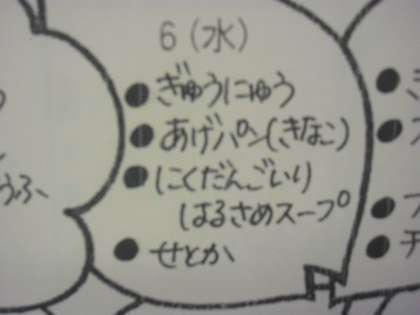 6(水)
●ぎゅうにゅう
●あげパン(きなこ)
●にくだんごいり
はるさめスープ
●せとか
うふ、